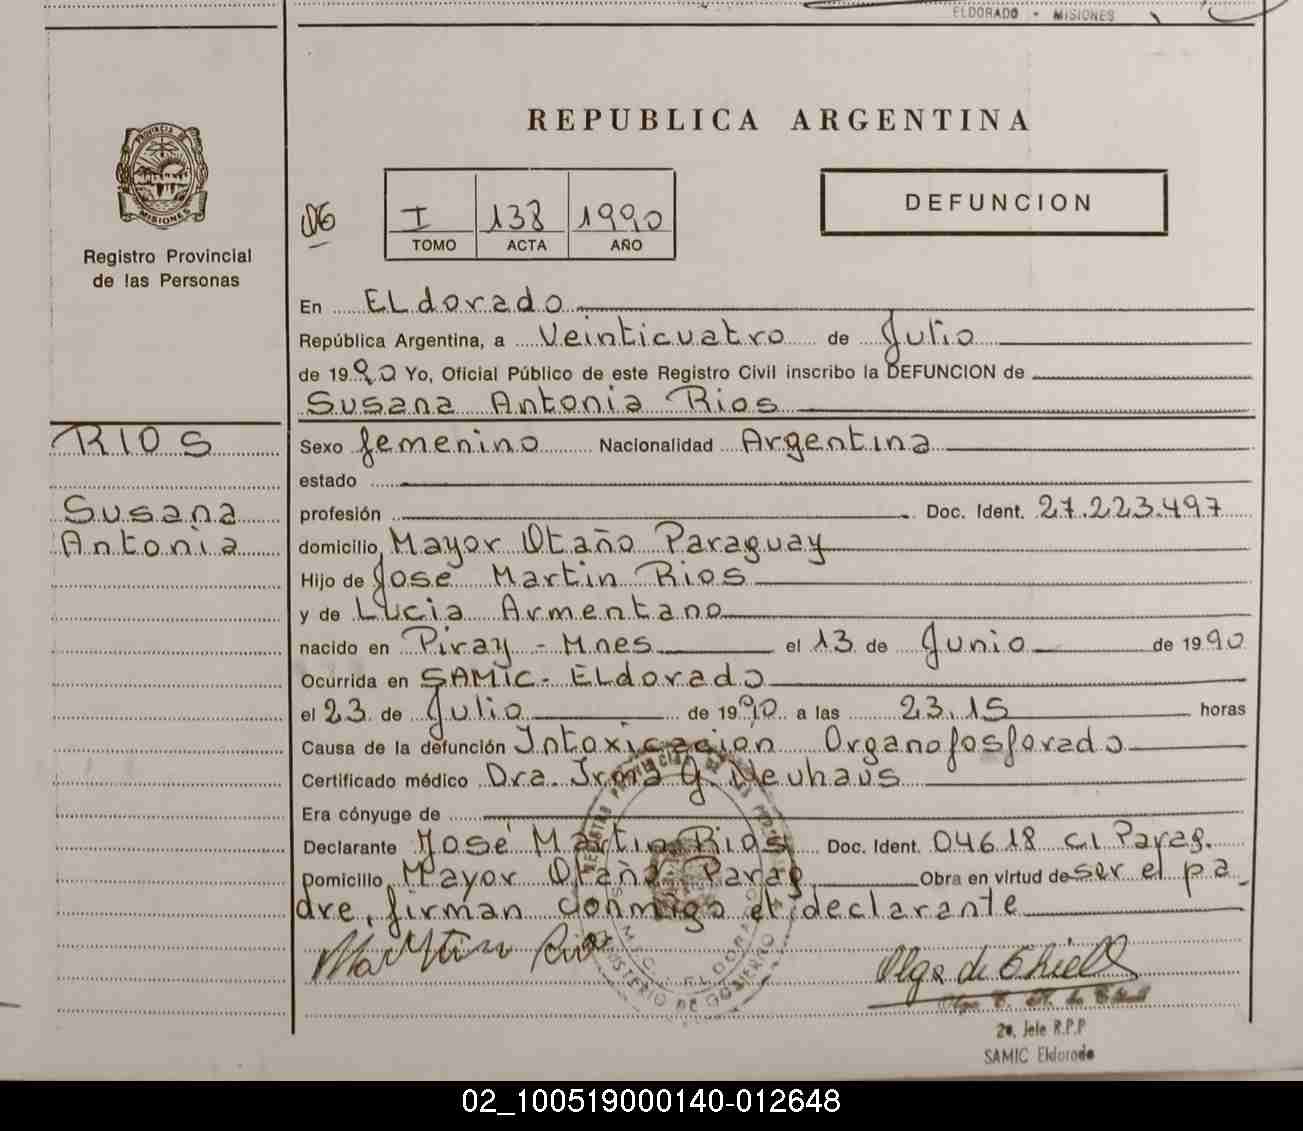 ELDORADO - MISIONES
REPUBLICA ARGENTINA
PROVINCIA DE
MISIONES
Registro Provincial
de las Personas
I 138 1990
TOMO ACTA AÑO
DEFUNCION
En ELdorado
República Argentina, a Veinticuatro de Julio
de 1990 Yo, Oficial Público de este Registro Civil inscribo la DEFUNCION de
Susana Antonia Rios
RIOS
Susana
Antonia
Sexo femenino Nacionalidad Argentina
estado
profesión Doc. Ident. 27.223.497
domicilio Mayor Otaño Paraguay
Hijo de José Martin Rios
y de Lucia Armentano
nacido en Piray - Mnes el 13 de Junio de 1990
Ocurrida en SAMIC - ELdorado
el 23 de Julio de 1990 a las 23.15 horas
Causa de la defunción Intoxicación Organofosforado
Certificado médico Dra. Irma G. Neuhaus
Era cónyuge de
Declarante José Martin Rios Doc. Ident. 04618 CI Parag.
Domicilio Mayor Otaño Parag Obra en virtud de ser el pa
dre, firman conmigo el declarante
Martin Rios
Olga de Thiell
2a. Jefe R.P.P
SAMIC Eldorado
MINISTERIO DE GOBIERNO
ELDORADO
02_100519000140-012648